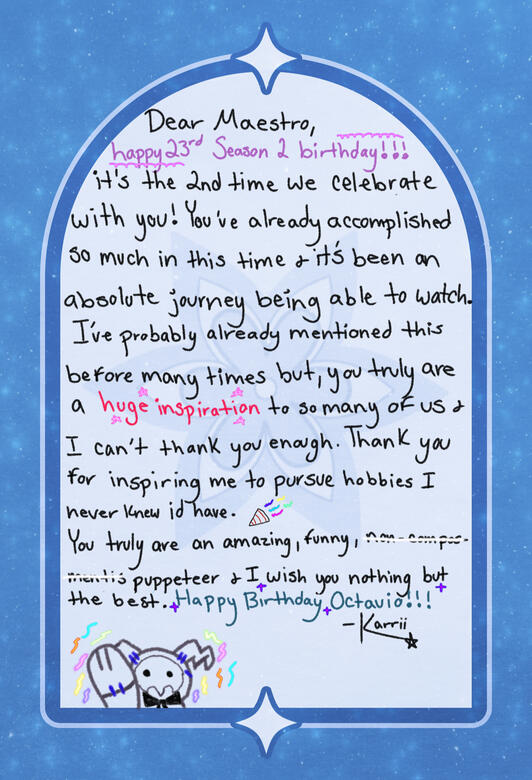 Dear Maestro,
happy 23rd Season 2 birthday!!!
it's the 2nd time we celebrate
with you! You've already accomplished
so much in this time & it's been an
absolute journey being able to watch.
I've probably already mentioned this
before many times but, you truly are
a huge inspiration to so many of us &
I can't thank you enough. Thank you
for inspiring me to pursue hobbies I
never knew id have.
You truly are an amazing, funny, non-compos-
mentis puppeteer & I wish you nothing but
the best. Happy Birthday Octavio!!!
-Karrii